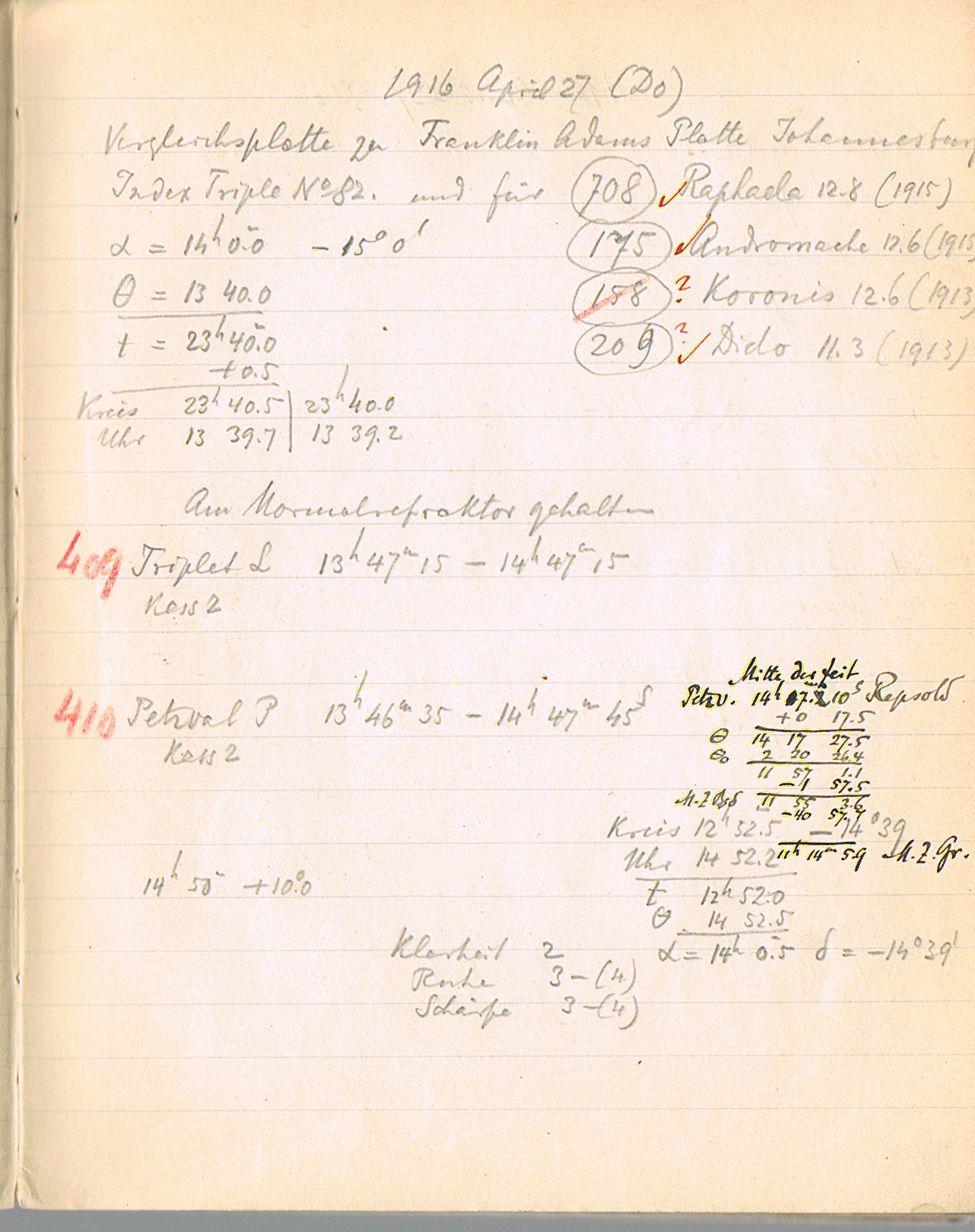 1916 April 27 (Do)
Vergleichsplatte zu Franklin Adams Platte Johannesburg
Index Triple No 82. und für 708 ✓ Raphaela 12.8 (1915)
α = 14h 0.0m − 15° 0' 175 ✓ Andromache 12.6 (1915
θ = 13 40.0 158 ? Koronis 12.6 (1913
t = 23h 40.0m 209 ? ✓ Dido 11.3 (1913)
+0.5
Kreis 23h 40.5 | 23h 40.0
Uhr 13 39.7 | 13 39.2
Am Normalrefraktor gehalten
409 Triplet L 13h 47m 15 − 14h 47m 15
Kass 2
410 Petzval P 13h 46m 35 − 14h 47m 45s
Kass 2
Mitte der Zeit
Petzv. 14h 17m 10s Repsold
+0 17.5
θ 14 17 27.5
θ0 2 20 26.4
11 57 1.1
−1 57.5
M.Z. Bgd 11 55 3.6
−40 57.7
11h 14m 5.9 M.Z.Gr.
Kreis 12h 52.5 − 14° 39
Uhr 14 52.2
t 12h 52.0
θ 14 52.5
α = 14h 0.5m δ = −14° 39'
14h 50m +10.0
Klarheit 2
Ruhe 3−(4)
Schärfe 3−(4)